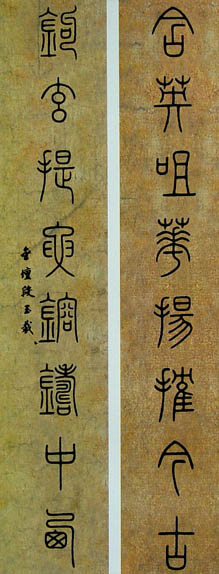 含英咀華揚搉今古
鉤玄提要鎔鑄中西
金壇段玉裁